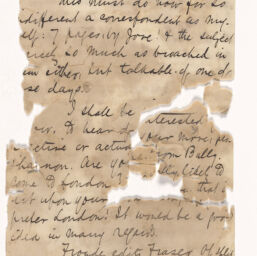 This must do now for so
different a correspondent as my-
self: 7 pages, by Jove! & the subject
so much as broached in
either, but talkable of one of
se days.
I shall be interested
to hear of your move, pers-
ective or actual from Bally-
shannon. Are yo likely to
come to London? that
upon your
prefer London! It would be a good
idea in many respects.
Froude edits Fraser